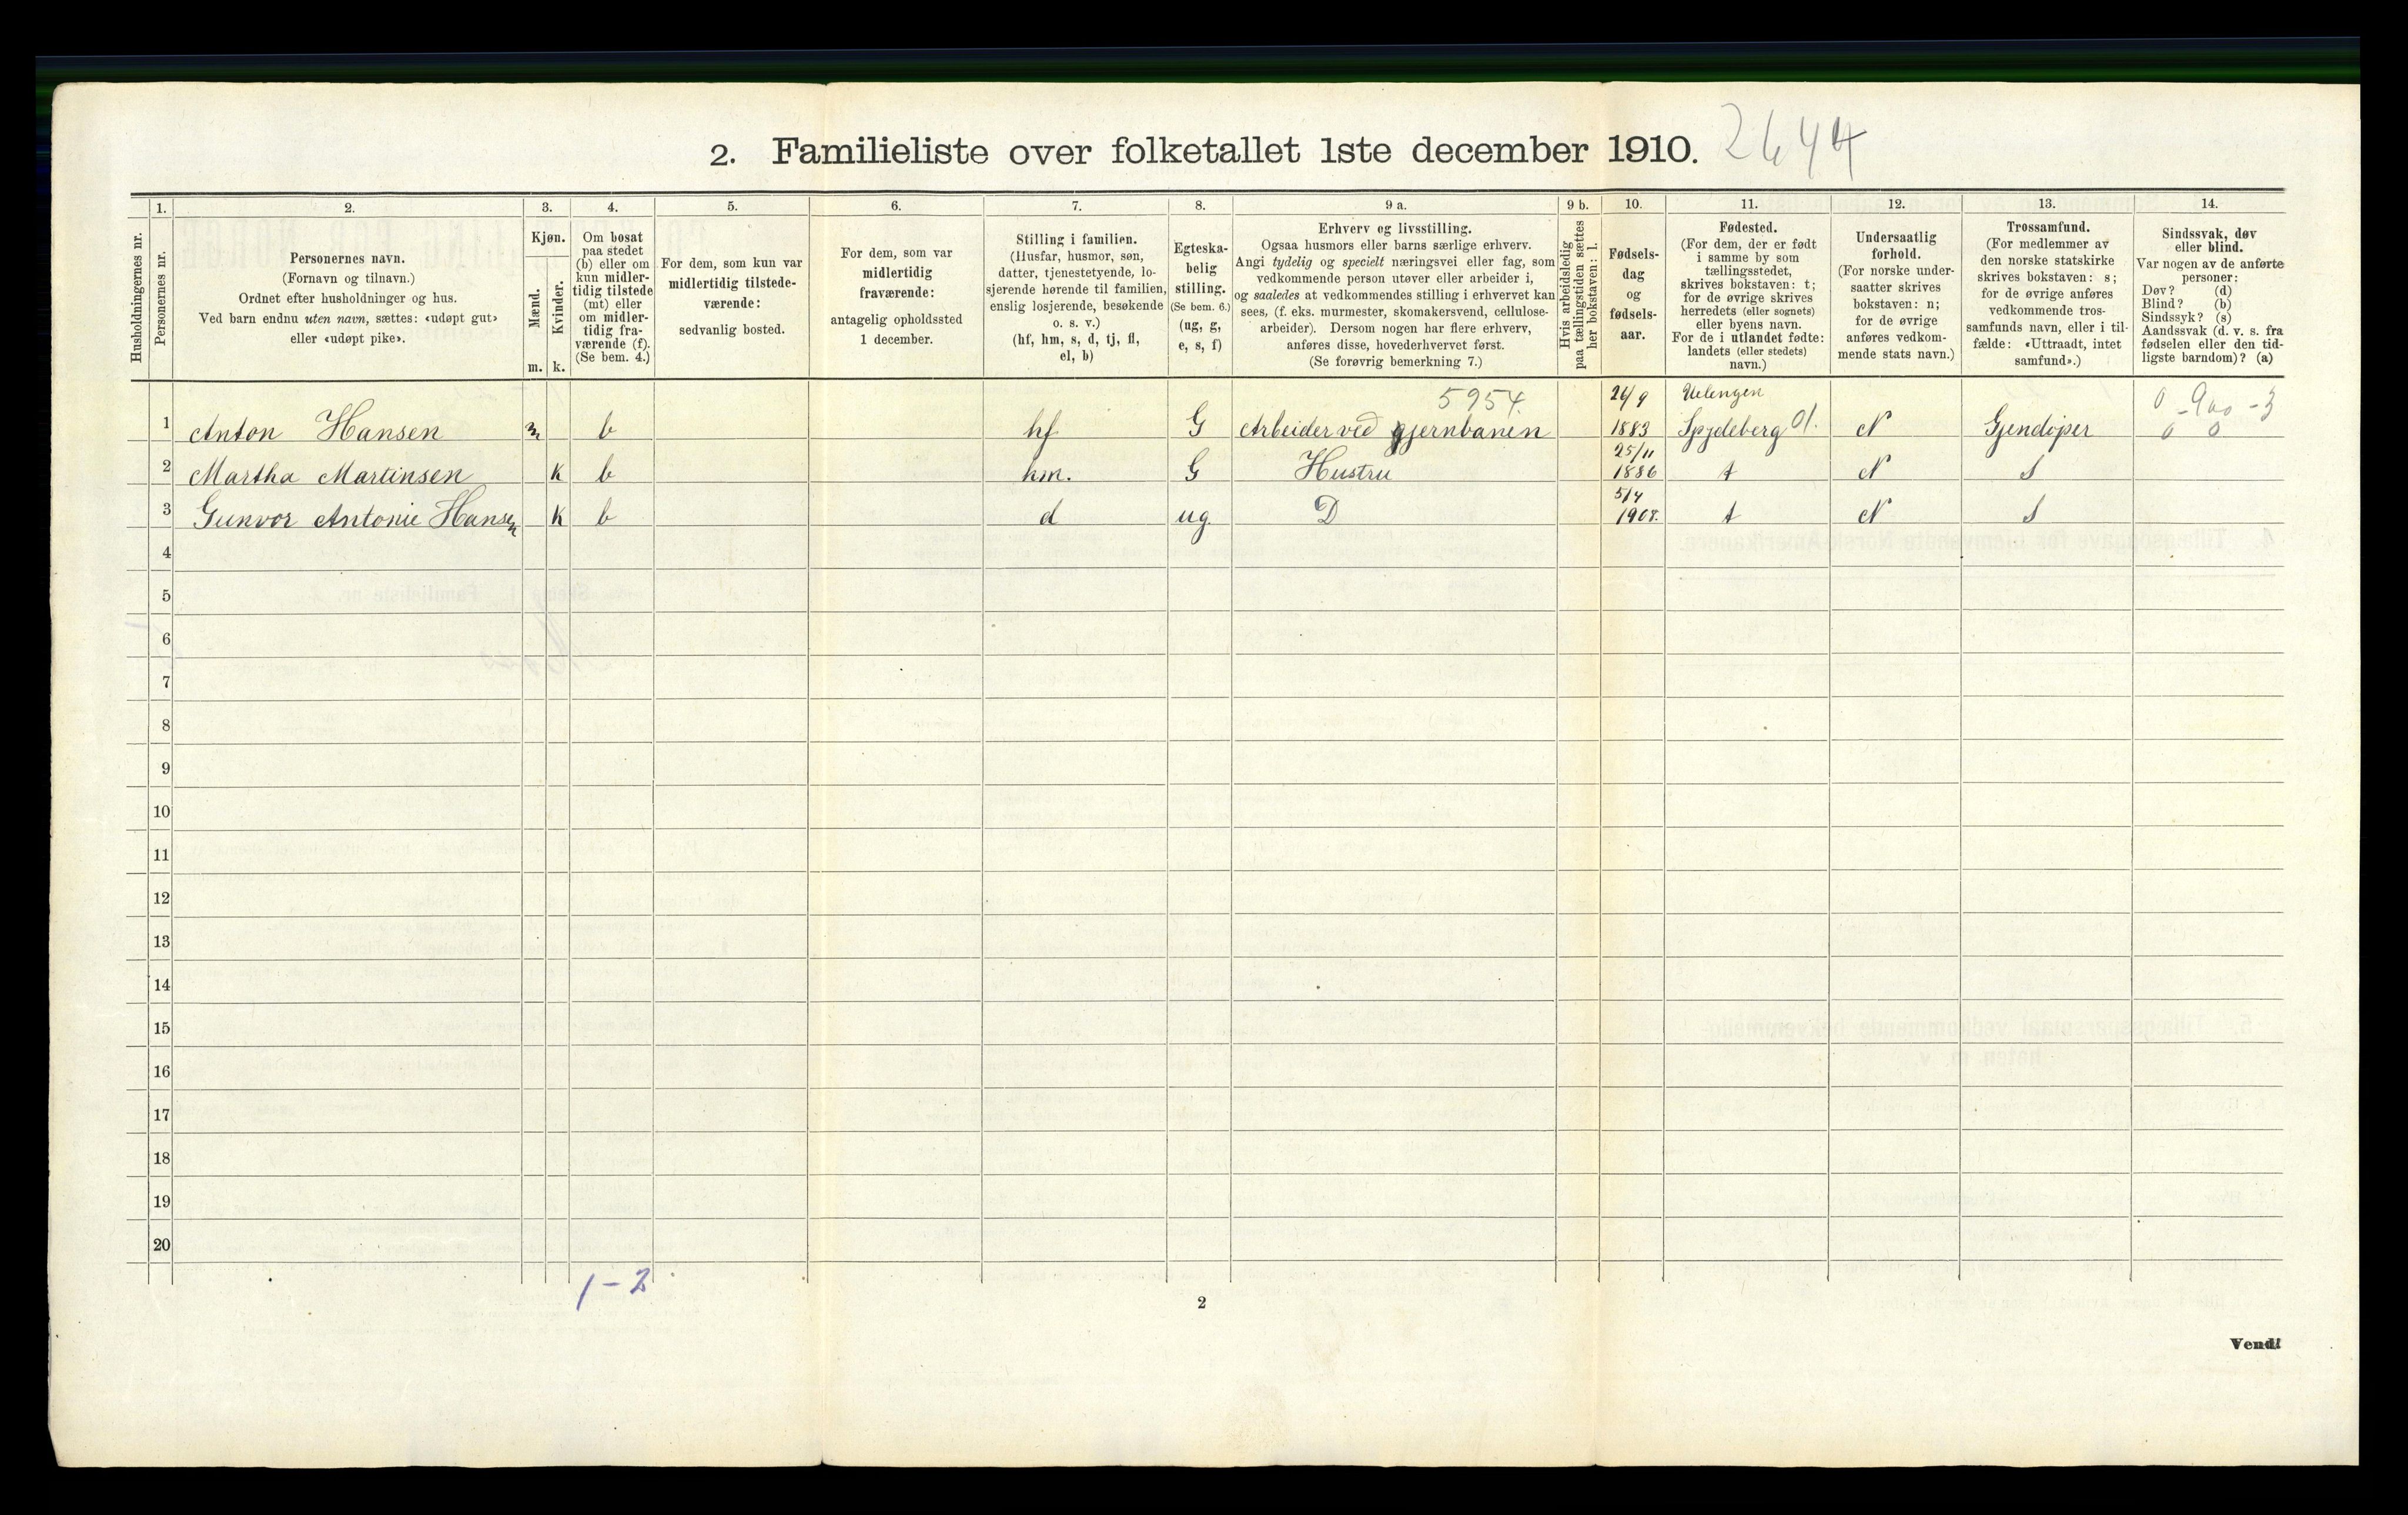 2. Familieliste over folketallet 1ste december 1910. 2644
Husholdningernes nr.
1.
Personernes nr.
2.
Personernes navn.
(Fornavn og tilnavn.)
Ordnet efter husholdninger og hus.
Ved barn endnu uten navn, sættes: «udøpt gut»
eller «udøpt pike».
3.
Kjøn.
Mænd.
Kvinder.
m. k.
4.
Om bosat
paa stedet
(b) eller om
kun midler-
tidig tilstede
(mt) eller
om midler-
tidig fra-
værende (f).
(Se bem. 4.)
5.
For dem, som kun var
midlertidig tilstede-
værende:
sedvanlig bosted.
6.
For dem, som var
midlertidig
fraværende:
antagelig opholdssted
1 december.
7.
Stilling i familien.
(Husfar, husmor, søn,
datter, tjenestetyende, lo-
sjerende hørende til familien,
enslig losjerende, besøkende
o. s. v.)
(hf, hm, s, d, tj, fl,
el, b)
8.
Egteska-
belig
stilling.
(Se bem. 6.)
(ug, g,
e, s, f)
9 a.
Erhverv og livsstilling.
Ogsaa husmors eller barns særlige erhverv.
Angi tydelig og specielt næringsvei eller fag, som
vedkommende person utøver eller arbeider i,
og saaledes at vedkommendes stilling i erhvervet kan
sees, (f. eks. murmester, skomakersvend, cellulose-
arbeider). Dersom nogen har flere erhverv,
anføres disse, hovederhvervet først.
(Se forøvrig bemerkning 7.)
9 b.
Hvis arbeidsledig
paa tællingstiden sættes
her bokstaven: l.
10.
Fødsels-
dag
og
fødsels-
aar.
11.
Fødested.
(For dem, der er født
i samme by som
tællingsstedet,
skrives bokstaven: t;
for de øvrige skrives
herredets (eller sognets)
eller byens navn.
For de i utlandet fødte:
landets (eller stedets)
navn.)
12.
Undersaatlig
forhold.
(For norske under-
saatter skrives
bokstaven: n;
for de øvrige
anføres vedkom-
mende stats navn.)
13.
Trossamfund.
(For medlemmer av
den norske statskirke
skrives bokstaven: s;
for de øvrige anføres
vedkommende tros-
samfunds navn, eller i til-
fælde: «Uttraadt, intet
samfund».)
14.
Sindssvak, døv
eller blind.
Var nogen av de anførte
personer:
Døv? (d)
Blind? (b)
Sindssyk? (s)
Aandssvak (d. v. s. fra
fødselen eller den tid-
ligste barndom)? (a)
5954. 26/9
1 Anton Hansen m b hf G Arbeider ved gjernbanen 1883 Spydeberg Ø. N Gjendøper 0 0
25/11
2 Martha Martinsen K b hm. G Hustru 1886 t N S
5/4
3 Gunvor Antonie Hansen K b d ug. D 1908. t N S
4
5
6
7
8
9
10
11
12
13
14
15
16
17
18
19
20
1-2
2
Vend!